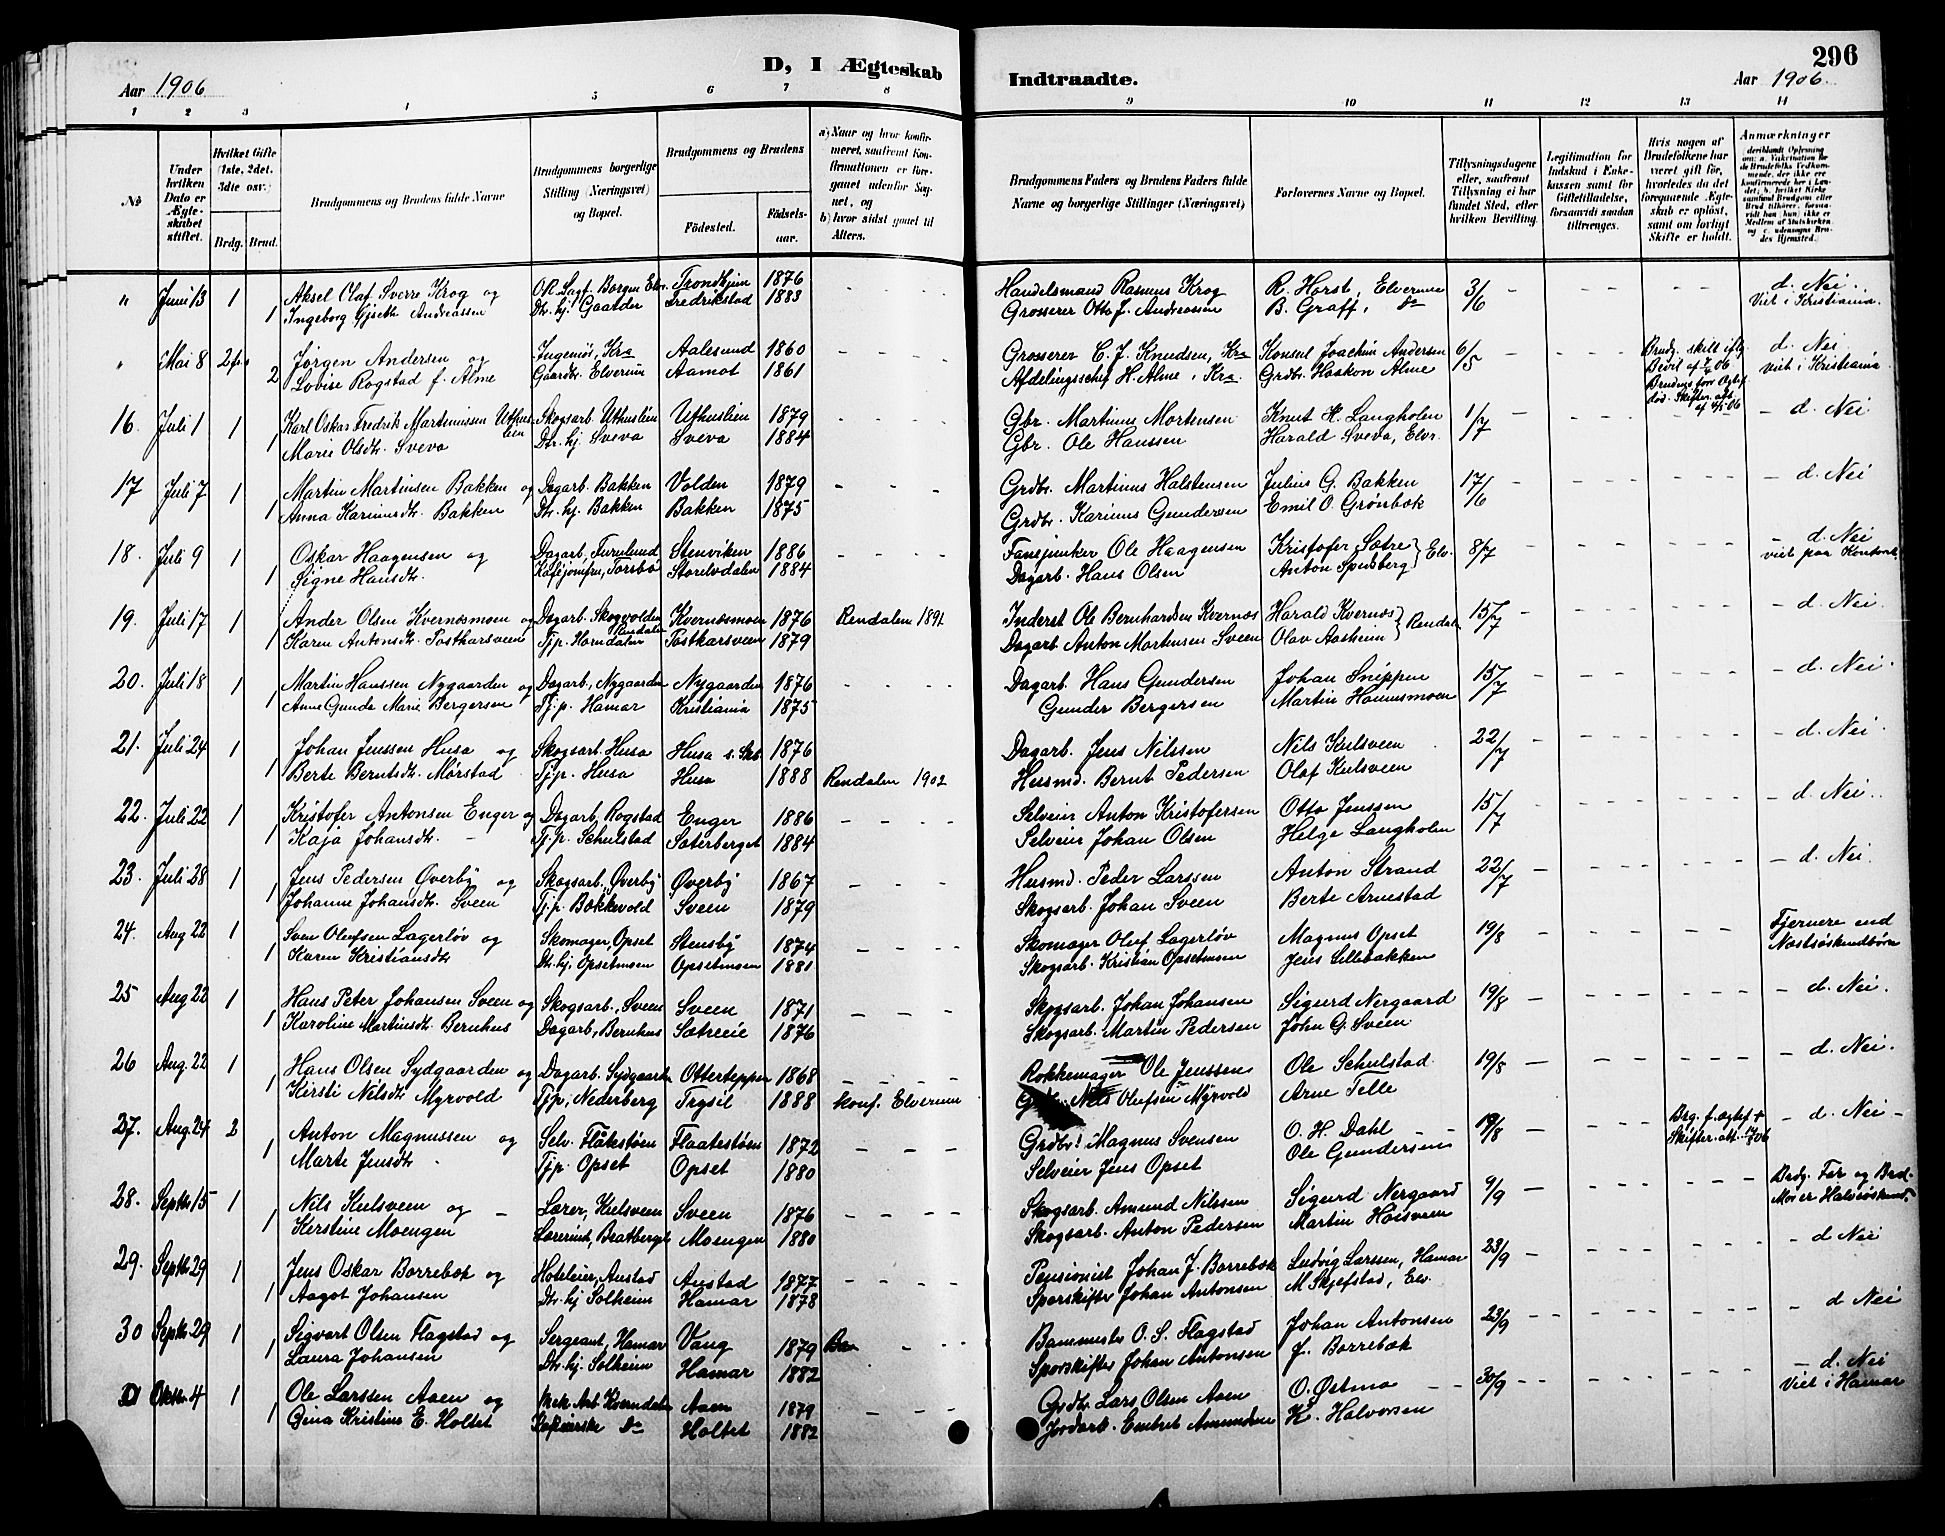 296
D, I Ægteskab Indtraadte.
Aar 1906 Aar 1906.
1 2 3 4 5 6 7 8 9 10 11 12 13 14
No
Under hvilken Dato er Ægteskabet stiftet.
Hvilket Gifte (1ste, 2det, 3die osv.)
Brdg. Brud.
Brudgommens og Brudens fulde Navne
Brudgommens borgerlige Stilling (Næringsvei) og Bopæl.
Brudgommens og Brudens
Fødested. Fødselsaar.
a) Naar og hvor konfirmeret, saafremt Konfirmationen er foregaaet udenfor Sognet, og
b) hvor sidst gaaet til Alters.
Brudgommens Faders og Brudens Faders fulde Navne og borgerlige Stillinger (Næringsvei)
Forlovernes Navne og Bopæl.
Tillysningsdagene eller, saafremt Tillysning ei har fundet Sted, efter hvilken Bevilling.
Legitimation for Indskud i Enkekassen samt for Giftetilladelse, forsaavidt saadan tiltrænges.
Hvis nogen af Brudefolkene har været gift før, hvorledes da det foregaaende Ægteskab er opløst, samt om lovligt Skifte er holdt.
Anmærkninger
" Juni 13 1 Aksel Olaf Sverre Krog og O.R. Sagf. Borgen Elv. Trondhjem 1876 - - - Handelsmand Rasmus Krog R. Horst, Elverum 3/6 - d. Nei.
1 Ingeborg Gjseth Andreassen Dtr. hj. Gaarder Fredrikstad 1883 Grosserer Otto J. Andreassen B. Graff, do Viet i Kristiania.
" Mai 8 2 Jørgen Andersen og Ingeniør, Kra Aalesund 1860 - - - Grosserer C. J. Knudsen, Kra Konsul Joachim Andersen 6/5 - Brudg. skilt iflg. d. Nei.
2 Lovise Rogstad f. Alme Gaardbr. Elverum Aamot 1861 Afdelingschef H. Alme, Kra. Grdbr. Haakon Alme Bevil. af 06 viet i Kristiania
16. Juli 1 1 Karl Oskar Fredrik Martiniussen Uthuslien Skogsarb. Uthuslien Uthuslien 1879 - - - Gbr. Martinus Mortensen Knut H. Langholen 1/7 - d. Nei
1 Marie Olsdtr. Sveva Dtr. hj. Sveva Sveva 1884 Gbr. Ole Hanssen Harald Sveva, Elv.
17 Juli 7 1 Martin Martinsen Bakken og Dagarb. Bakken Volden 1879 - - - Grdbr. Martinus Halstensen Julius G. Bakken 17/6 - d. Nei
1 Anna Kariusdtr. Bakken Dtr. hj. Bakken Bakken 1875 Grdbr. Karinus Gundersen Emil O. Grønbæk
18. Juli 9 1 Oskar Haagensen og Dagarb. Furulund Stenviken 1886 - - - Fanejunker Ole Haagensen Kristofer Sætre } Elv. 8/7 - d. Nei
1 Signe Hansdtr. Kafejomfru, Torsbo Storelvdalen 1884 Dagarb. Hans Olsen Anton Spydsberg viet paa Kontoret
19. Juli 17 1 Ander Olsen Kvernesmoen og Dagarb. Skogvolden Kvernesmoen 1876 Rendalen 1891 Inderst Ole Bernhardsen Kvernes Harald Kvernes } Rendal 15/7 - d. Nei.
1 Karen Antonsdtr. Postkarsveen Tjp. Horndalen Rendalen Postkarsveen 1879 Dagarb. Anton Mortensen Sveen Olav Aasheim
20. Juli 18 1 Martin Hanssen Nygaarden og Dagarb. Nygaarden Nygaarden 1876 - - - Dagarb. Hans Gundersen Johan Snippen 15/7 - d. Nei.
1 Anne Gunda Marie Bergersen Tj.p. Hamar Kristiania 1875 Gunder Bergersen Martin Hammsmoen
21. Juli 24 1 Johan Jenssen Husa og Skogsarb. Husa Husa s. Skb. 1876 Dagarb. Jens Nilssen Nils Kulsveen 22/7 - d. Nei.
1 Berte Berntsdtr. Mørstad Tjp. Husa Husa 1888 Rendalen 1902 Husmd. Bernt Pedersen Olaf Kulsveen
22. Juli 22 1 Kristofer Antonsen Enger og Dagarb. Rogstad Enger 1886 - - - Selveier Anton Kristofersen Otto Jenssen 15/7 - d. Nei.
1 Kaja Johansdtr. - Tj.p. Schulstad Sæterberget 1884 Selveier Johan Olsen Helge Langholen
23. Juli 28 1 Jens Pedersen Øverby og Skogsarb., Øverby Øverby 1867 - - - Husmd. Peder Larssen Anton Strand 22/7 - d. Nei.
1 Johanne Johansdtr. Sveen Tj.p. Bækkevold Sveen 1879 Skogsarb. Johan Sveen Berte Arnestad
24. Aug 22 1 Sven Olufsen Lagerløv og Skomager, Opset Stensby 1874 - - - Skomager Oluf Lagerløv Magnus Opset 19/8 - Fjernere end
1 Karen Kristiansdtr Dtr. hj. Opsetmoen Opsetmoen 1881 Skogsarb. Kristian Opsetmoen Jens Lillebakken Næstsøskendbørn
25 Aug 22 1 Hans Peter Johansen Sveen og Skogsarb., Sveen Sveen 1871 - - - Skogsarb. Johan Johansen Sigurd Nergaard 19/8 - d. Nei.
1 Karoline Martinsdtr. Bernhus Dagarb., Bernhus Sætreeie 1876 Skogsarb. Martin Pedersen John G. Sveen
26 Aug. 22 1 Hans Olsen Sydgaarden og Dagarb. Sydgaarden Otterteppen 1868 - - - Rokkemager Ole Jenssen Ole Schulstad 19/8 - d. Nei.
1 Kirsti Nilsdtr Myrvold Tjp., Nederberg Trysil 1888 Konf. Elverum Nils Olufsen Myrvold Arne Telle
27. Aug. 24 2 Anton Magnussen og Selv. Flåtestøen Flaatestøen 1872 - - - Grdbr. Magnus Svensen O. H. Dahl 19/8 - Brg. f. ægtef. + d. Nei -
1 Marte Jensdtr. Tjp. Opset Opset 1880 Selveier Jens Opset Ole Gundersen Skifter. att. 06
28. Septbr 15 1 Nils Kulsveen og - Lærer, Kulsveen Sveen 1876 - - - Skogsarb. Amund Nilssen Sigurd Nergaard 9/9 - Brdg. Far og Brud.
1 Kirstine Moengen Lærerind., Bratberget Moengen 1880 Skogsarb. Anton Pedersen Martin Høisveen Mor er Halvsøskend.
29. Septbr 29 1 Jens Oskar Borrebæk og Hoteleier, Anstad Anstad 1877 - - - Pensionist Johan J. Borrebæk Ludvig Larssen, Hamar 23/9 - d Nei
1 Aagot Johansen Dtr. hj Solheim Hamar 1878 Sporskifter Johan Antonsen M. Skjefstad, Elv.
30 Septbr 29 1 Sigvart Olsen Flagstad og Sergeant, Hamar Vang 1879 Banemester O. S. Flagstad Johan Antonsen 23/9 - d Nei
1 Laura Johansen Dtr. hj. Solheim Hamar 1882 Sporskifter Johan Antonsen J. Borrebæk
Oktbr 4 1 Ole Larssen Aaen og Mek. Arb. Aaen 1879 - - - Grdbr. Lars Olsen Aaen O. Østmo 30/9 - d. Nei
1 Gina Kristine E. Holtet do Holtet 1882 Jordarb. Embret Amundsen K. Halvorsen Viet i Hamar